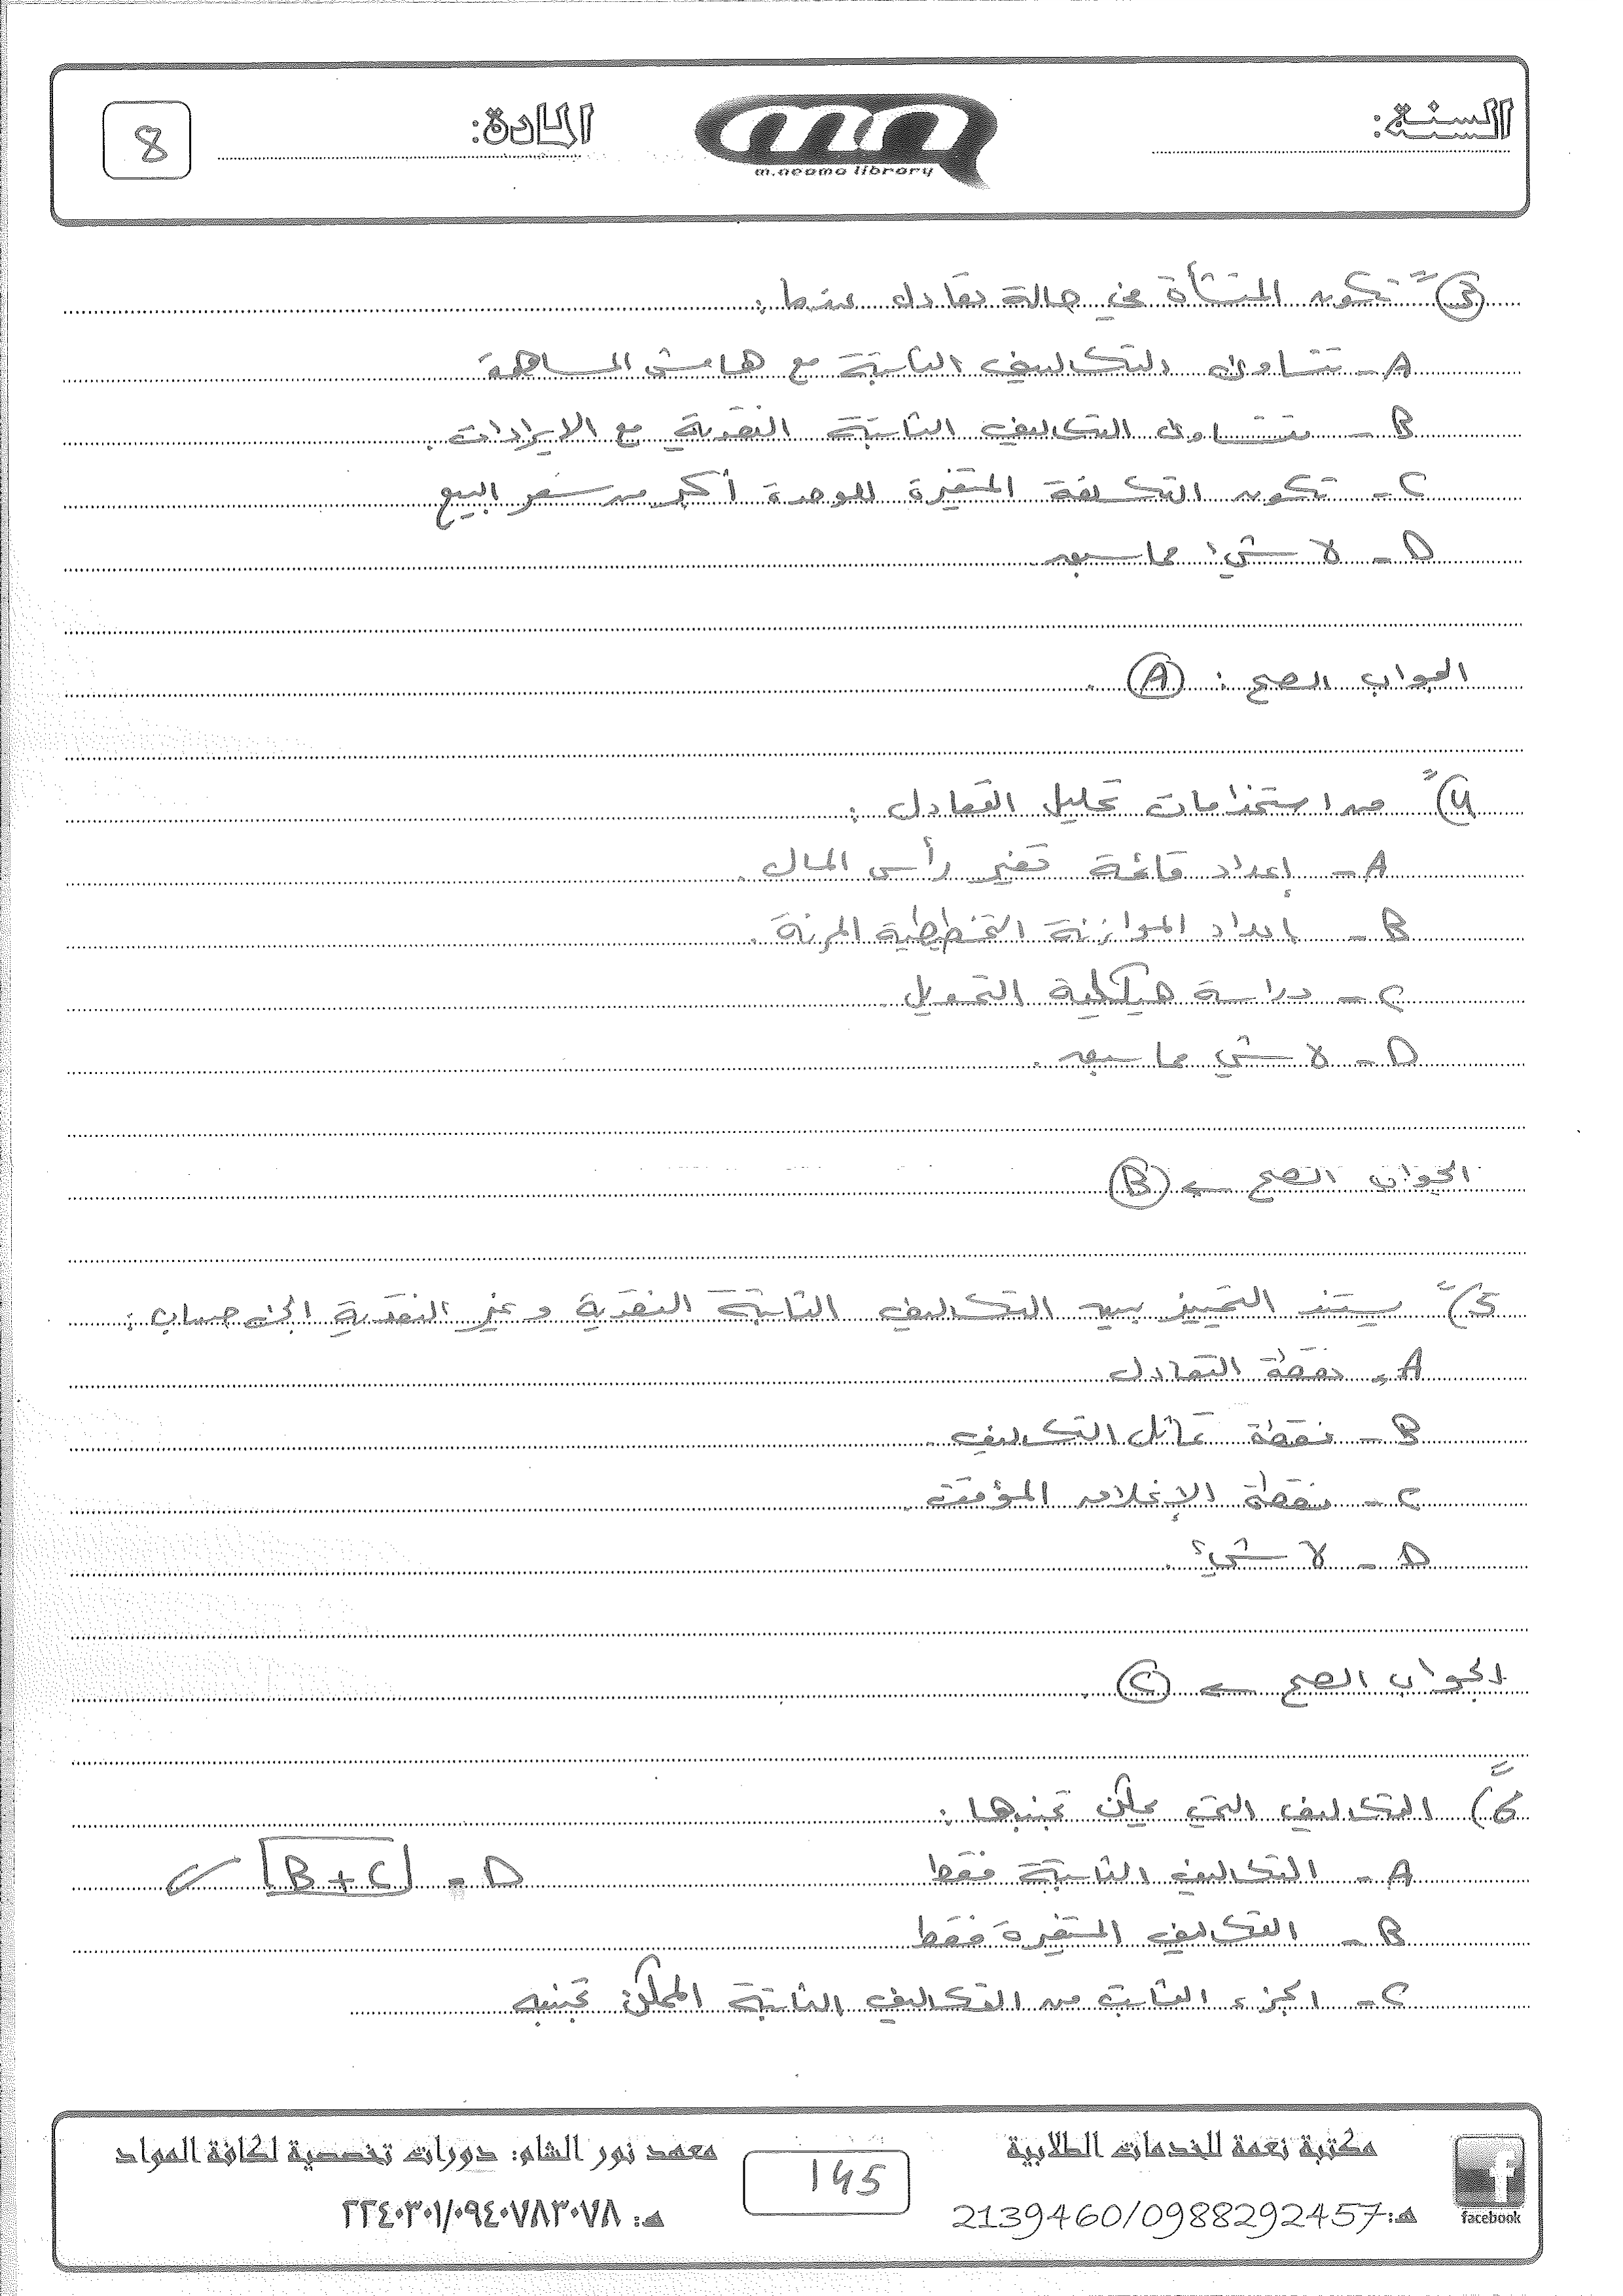 السنة:
m.neama library
المادة:
8
3) تكون المنشأة في حالة تعادل عندما :
A - تتساوى التكاليف الثابتة مع هامش المساهمة
B - تتساوى التكاليف الثابتة النقدية مع الايرادات .
C - تكون التكلفة المتغيرة للوحدة أكبر من سعر البيع
D - لا شيء مما سبق
الجواب الصح : A .
4) من استخدامات تحليل التعادل :
A - إعداد قائمة تغير رأس المال .
B - إعداد الموازنة التخطيطية المرنة .
C - دراسة هيكلية التمويل
D - لا شي مما سبق .
الجواب الصح ← B
5) يستند التمييز بين التكاليف الثابتة النقدية وغير النقدية الى حساب :
A - نقطة التعادل
B - نقطة تماثل التكاليف .
C - نقطة الإغلاق المؤقت .
D - لا شيء .
الجواب الصح ← C
6) التكاليف التي يمكن تجنبها :
A - التكاليف الثابتة فقط
D - B + C
B - التكاليف المتغيرة فقط
C - الجزء الثابت من التكاليف الثابتة الممكن تجنبه
مكتبة نعمة للخدمات الطلابية
هـ: 2139460/0988292457
facebook
145
معهد نور الشام: دورات تخصصية لكافة المواد
هـ: ٢٢٤٠٣٠١/٠٩٤٠٧٨٣٠٧٨